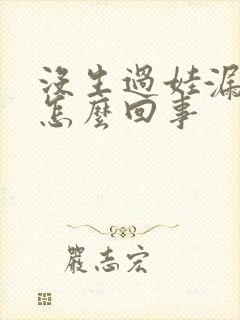 没生過娃漏
怎麼回事
嚴志宏